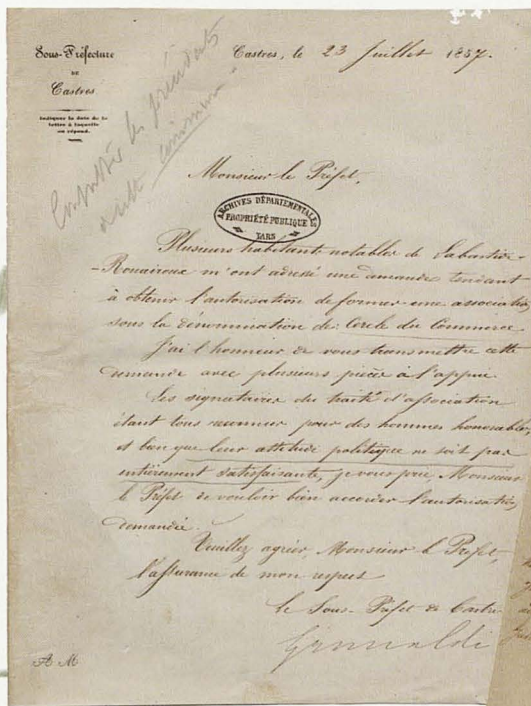 Sous-Préfecture
DE
Castres.
Indiquer la date de la
lettre à laquelle
on répond.
Castres, le 23 Juillet 1857.
Consulter les précédents
cette commune
Monsieur le Préfet,
ARCHIVES DÉPARTEMENTALES
PROPRIÉTÉ PUBLIQUE
TARN
Plusieurs habitants notables de Labastide-
-Rouairoux m'ont adressé une demande tendant
à obtenir l'autorisation de former une association
sous la dénomination de: Cercle du Commerce.
J'ai l'honneur de vous transmettre cette
demande avec plusieurs pièces à l'appui.
Les signataires du traité d'association
étant tous reconnus pour des hommes honorables,
et bien que leur attitude politique ne soit pas
entièrement satisfaisante, je vous prie, Monsieur
le Préfet de vouloir bien accorder l'autorisation
demandée.
Veuillez agréer, Monsieur le Préfet,
l'assurance de mon respect
Le Sous-Préfet de Castres
Grimaldi
A M